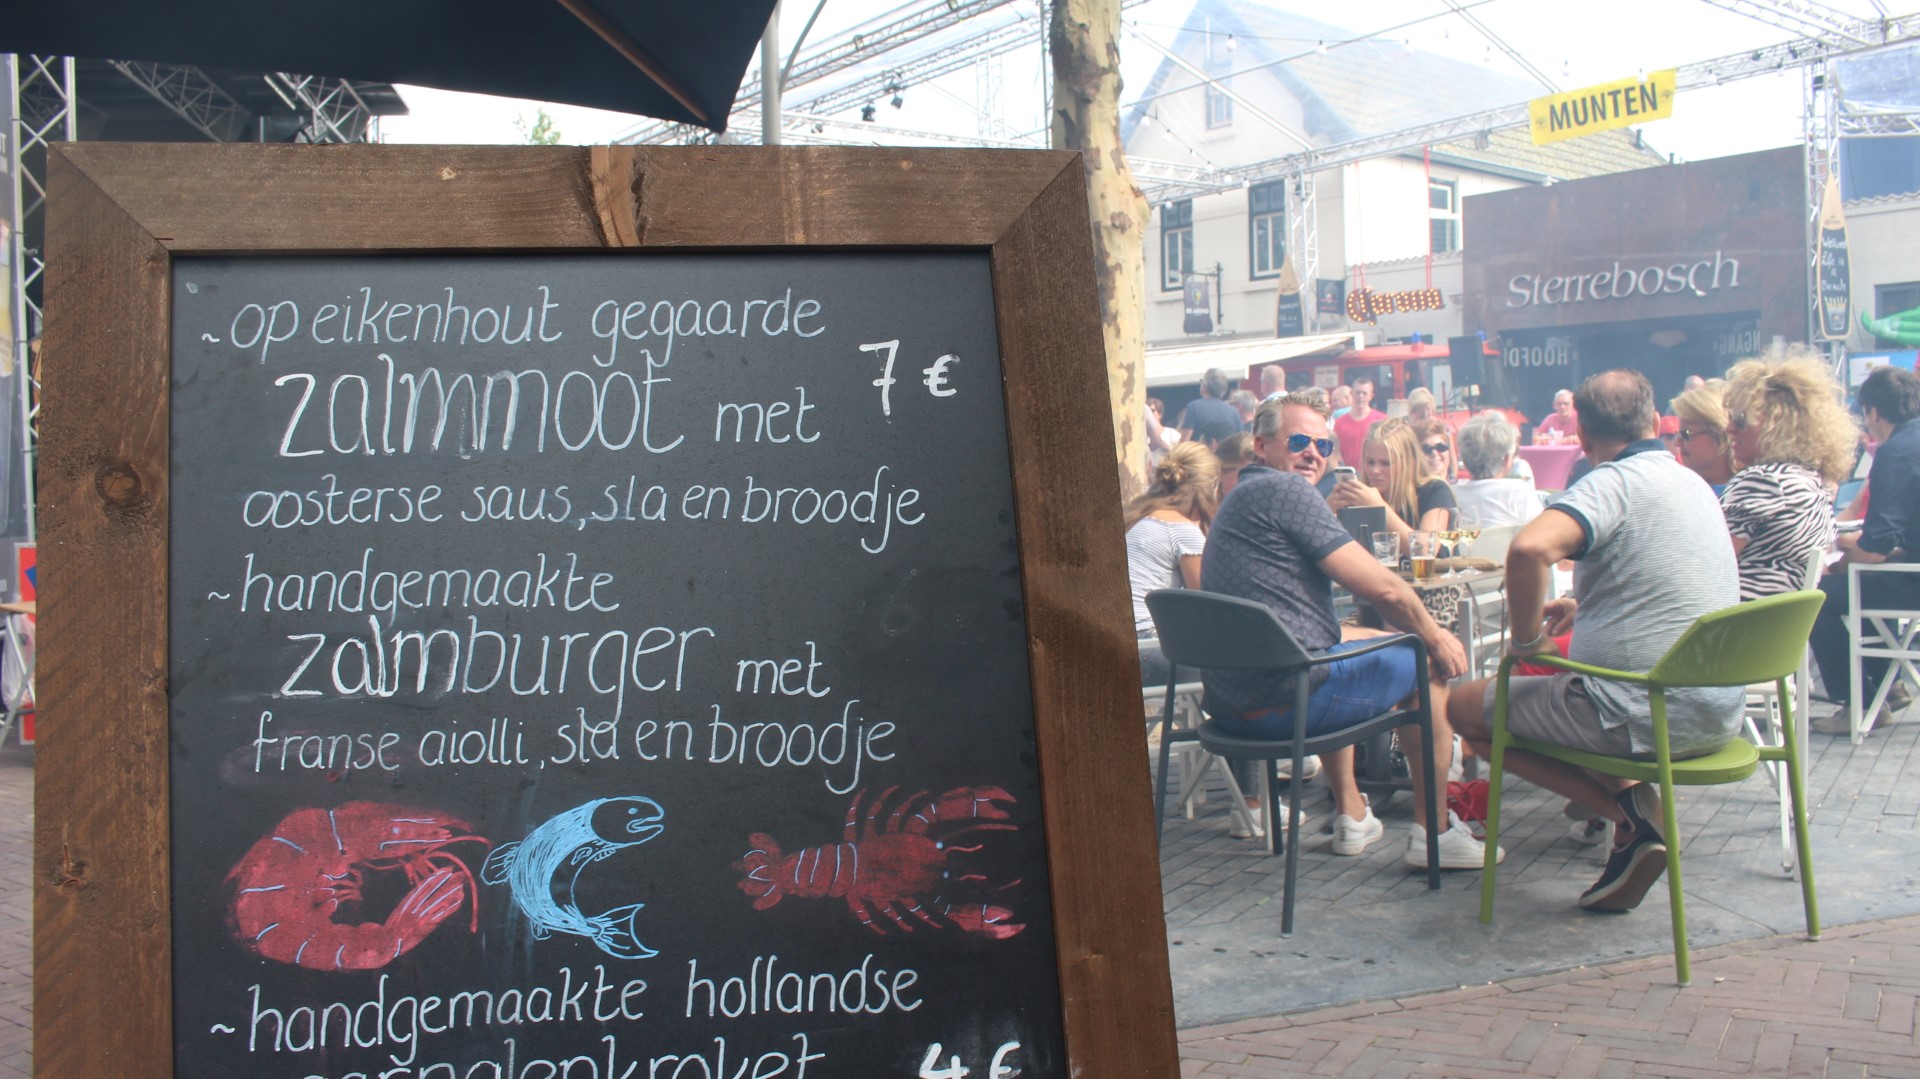 ~op eikenhout gegaarde
zalmmoot met 7 €
oosterse saus, sla en broodje
~handgemaakte
zalmburger met
franse aiolli, sla en broodje
~handgemaakte hollandse
garnalenkroket 4 €
MUNTEN
Sterrebosch
HOOFD
NGANG